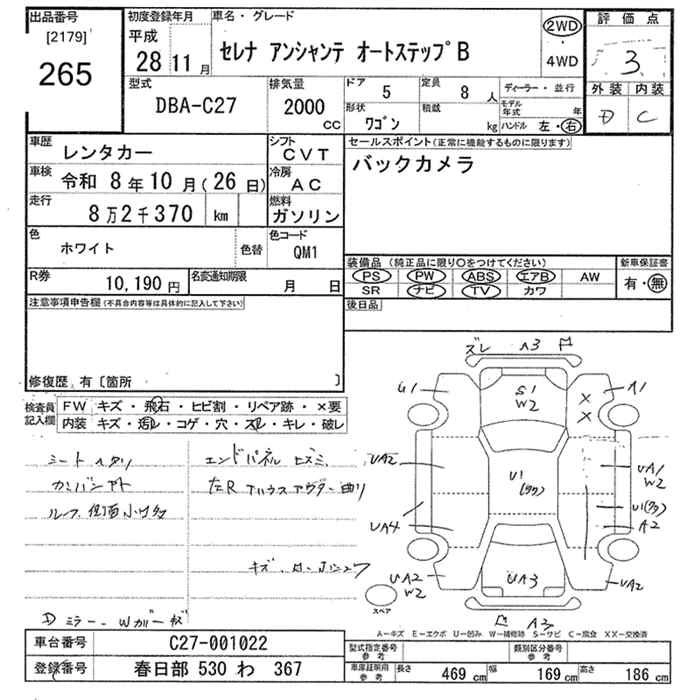 出品番号
[2179]
265
初度登録年月
平成
28 11月
車名・グレード
セレナ アンシャンテ オートステップB
2WD
・
4WD
評価点
3
外装 内装
D C
型式
DBA-C27
排気量
2000
cc
ドア
5
定員
8 人
形状
ワゴン
積載
kg
ディーラー・並行
モデル年式 年
ハンドル 左・右
車歴
レンタカー
車検
令和 8年10月(26日)
走行
8万2千370 km
シフト
CVT
冷房
AC
燃料
ガソリン
色
ホワイト
色替
色コード
QM1
R券
10,190円
名変通知期限
月 日
セールスポイント(正常に機能するものに限ります)
バックカメラ
装備品(純正品に限り○をつけてください)
PS PW ABS エアB AW
SR ナビ TV カワ
新車保証書
有・無
後日品
注意事項申告欄(不具合内容等は具体的に記入して下さい)
修復歴,有〔箇所 〕
検査員記入欄
FW キズ・飛石・ヒビ割・リペア跡・×要
内装 キズ・汚レ・コゲ・穴・スレ・キレ・破レ
シートヘタリ
ルーフ,側面小キズ多
エンドパネル ヒズミ
Dミラー,Wガーキズ
ズレ A3
G1
A1
S1
W2
×
×
UA2
U1
UA1
W2
A2
UA4
UA2
W2
UA3
UA2
A3
スペア
A―キズ E―エクボ U―凹み W―補修跡 S―サビ C―腐食 XX―交換済
車台番号
C27-001022
登録番号
春日部 530 わ 367
型式指定番号
参考
類別区分番号
参考
車庫証明用
参考
長さ 469 cm 幅 169 cm 高さ 186 cm